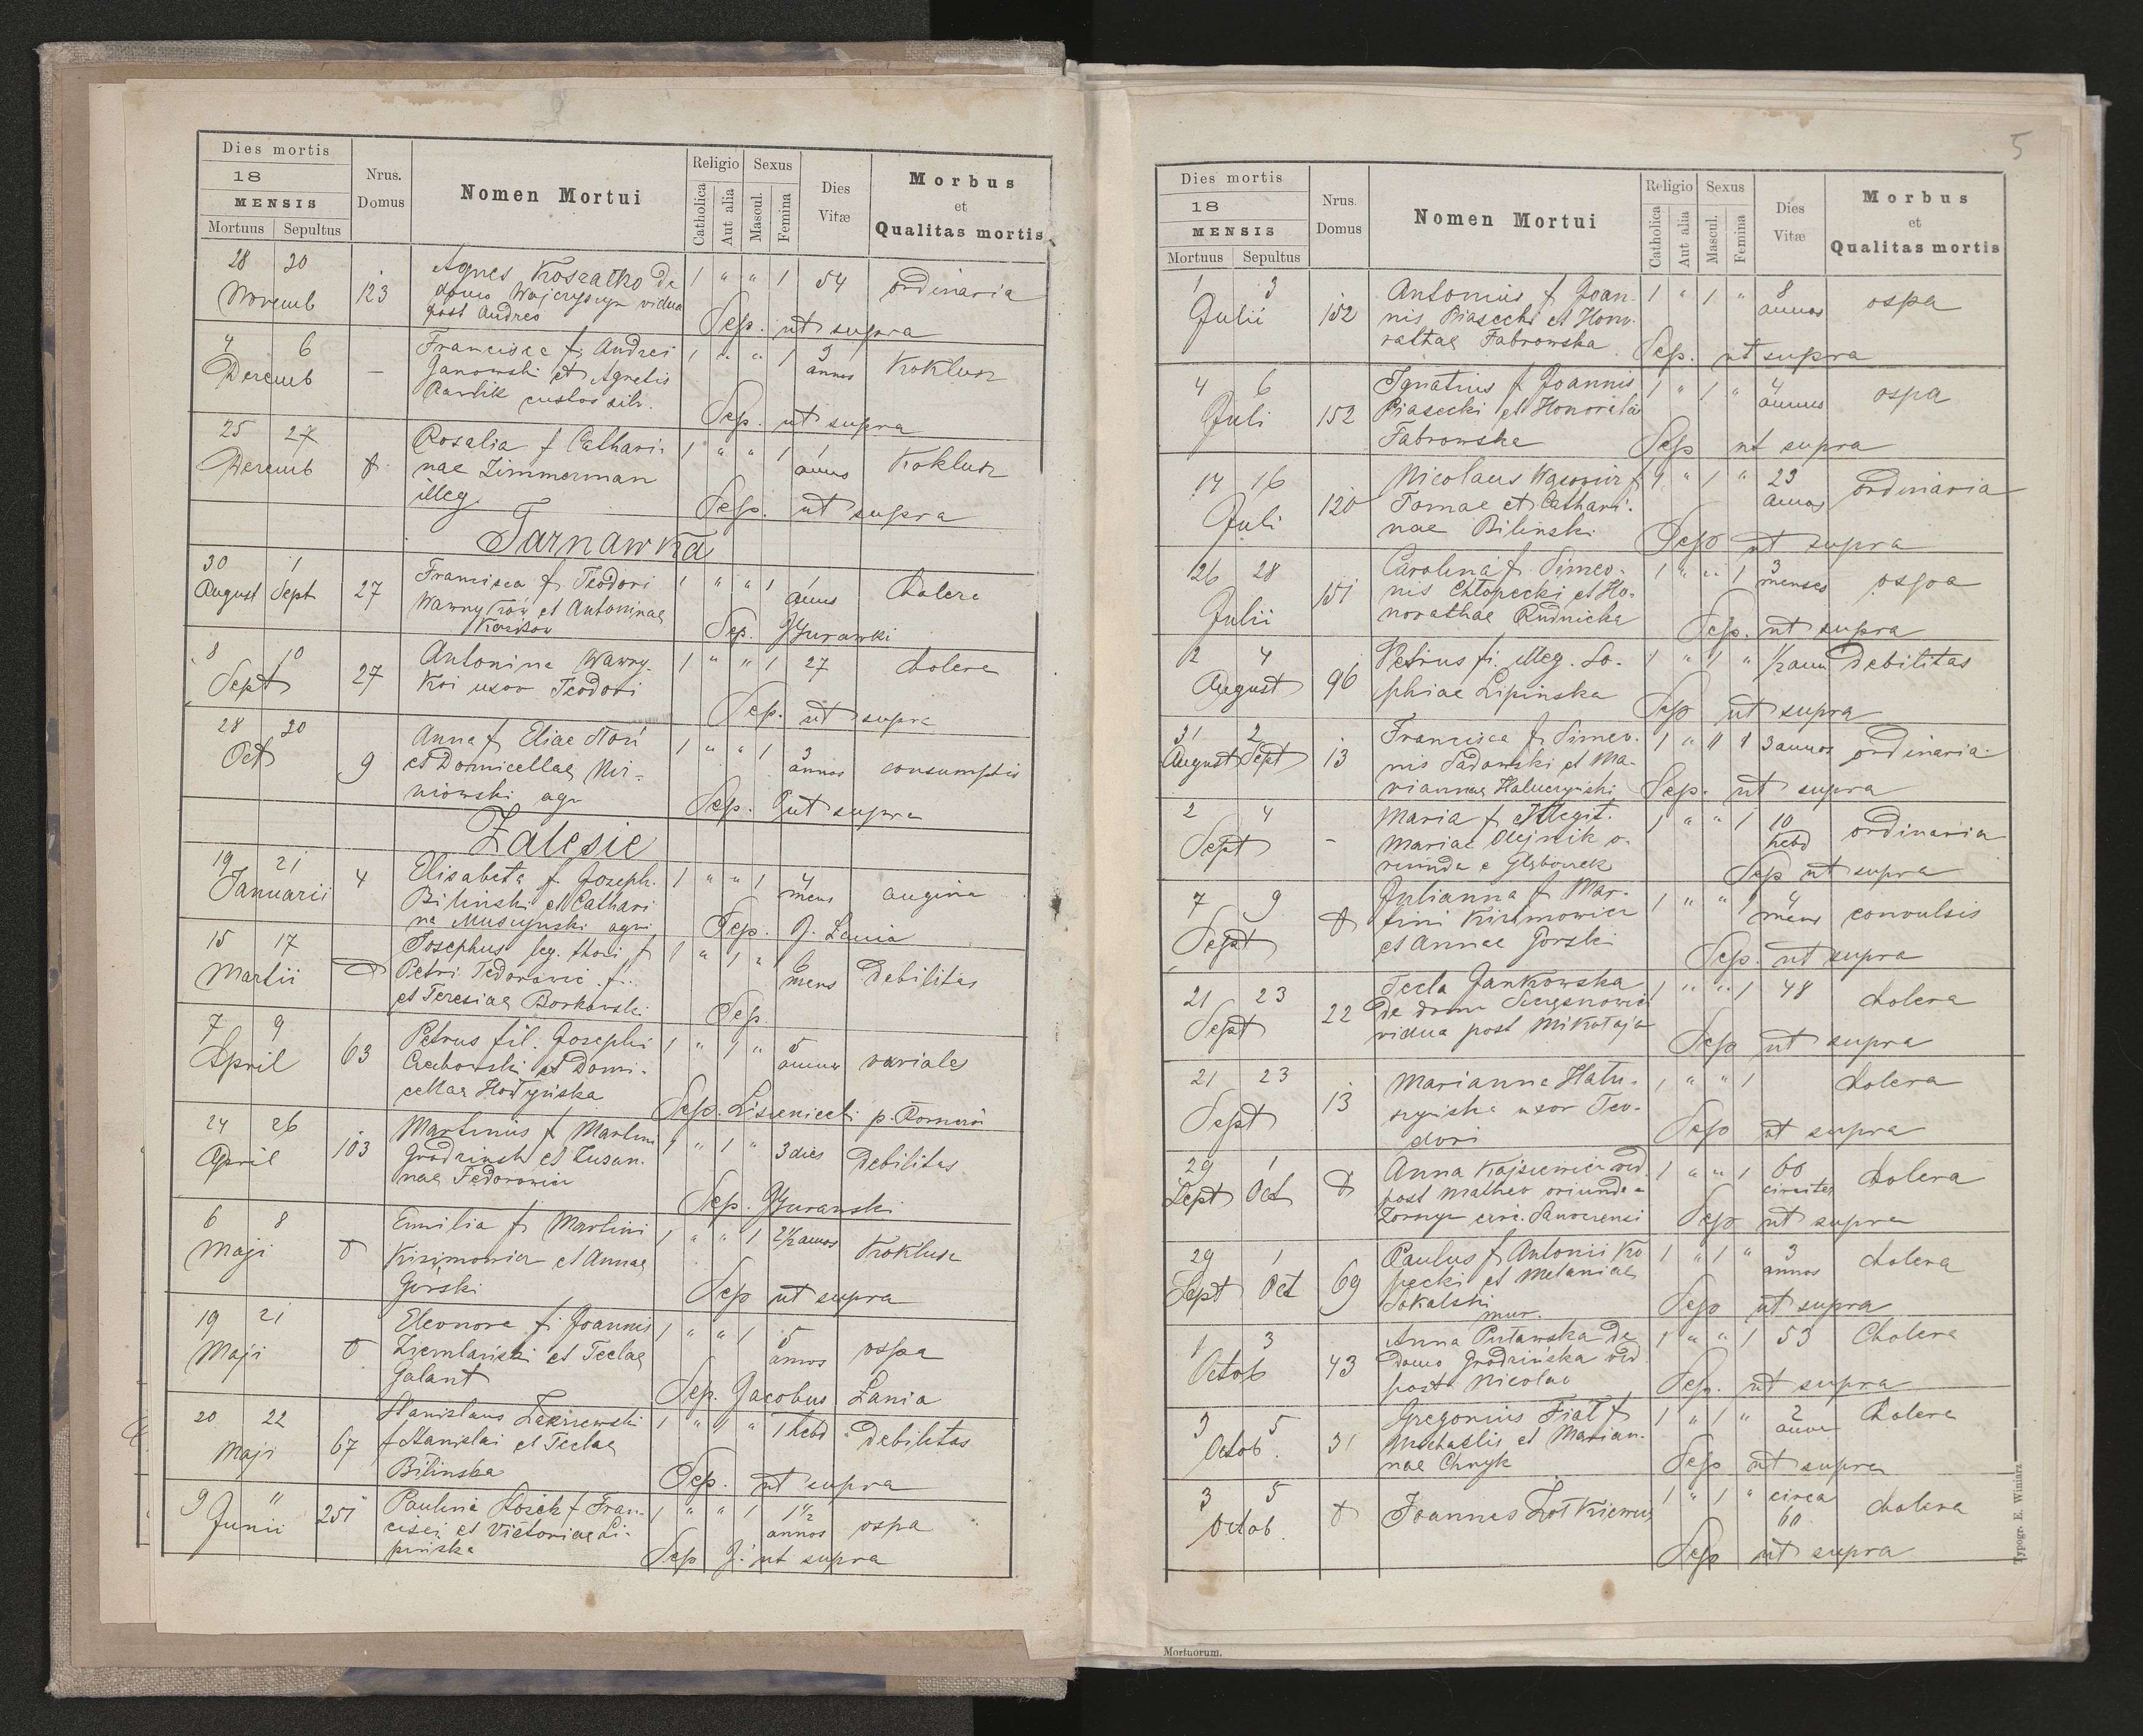 Dies mortis
18
MENSIS
Mortuus Sepultus
Nrus. Domus
Nomen Mortui
Religio
Catholica
Aut alia
Sexus
Mascul.
Femina
Dies Vitæ
Morbus et Qualitas mortis
28 30 Novemb 123
Agnes Koszałko de
domo vidua
post Andreo
1 " " 1 54 ordinaria
Sep. ut supra
4 6 Decemb –
Francisca f. Andrei
Janowski et Agnetis
Pawlik custos silv.
1 " " 1 3 annos Koklusz
Sep. ut supra
25 27 Decemb
Rosalia f Cathari-
nae Zimmerman
illeg.
1 " " 1 1 annus Koklusz
Sep. ut supra
Tarnawka
30 August 1 Sept 27
Francisca f. Teodori
et Antoninae
1 " " 1 1 annus Cholera
Sep. Gurawski
8 10 Sept 27
Antonina Wawry-
uxor Teodori
1 " " 1 27 cholera
Sep. ut supra
28 30 Oct 9
Anna f Eliae
et Domicellae Wir-
niowski agr
1 " " 1 3 annos consumptis
Sep. ut supra
Zalesie
19 21 Januarii 4
Elisabeta f. Joseph.
Biliński et Cathari
na agri
1 " " 1 4 mens angina
Sep. J. Lania
15 17 Martii
Josephus leg. thori f
Petri Fedorowic f.
et Teresiae Borkowski
1 " 1 " 6 mens debilitas
Sep.
7 9 April 63
Petrus fil. Josephi
Czechowski et Domi-
cellae Hodyńska
1 " 1 " 5 annus variales
Sep. Liszniecki p.
24 26 April 103
Martinus f Martini
Grodzinski et Zusan-
nae Fedorowicz
1 " 1 " 3 dies debilitas
Sep. Gurawski
6 8 Maji
Emilia f. Martini
Kizimowicz et Annae
Górski
1 " " 1 2½ annos Koklusz
Sep ut supra
19 21 Maji
Eleonora f. Joannis
Ziemlański et Teclae
Galant
1 " " 1 5 annos ospa
Sep. Jacobus Lania
20 22 Maji 67
Stanislaus
f Stanislai et Teclae
Bilinska
1 " 1 " 1 hebd debilitas
Sep. ut supra
9 11 Junii 251
Paulina Łosick f Fran-
cisci et Victoriae Li-
pińska
1 " " 1 1½ annos ospa
Sep J. ut supra
5
Dies mortis
18
MENSIS
Mortuus Sepultus
Nrus. Domus
Nomen Mortui
Religio
Catholica
Aut alia
Sexus
Mascul.
Femina
Dies Vitæ
Morbus et Qualitas mortis
1 3 Julii 152
Antonius f Joan-
nis Piasecki et Hono-
rathae Fabrowska
1 " 1 " 8 annos ospa
Sep. ut supra
4 6 Juli 152
Ignatius f Joannis
Piasecki et Honorata
Fabrowska
1 " 1 " 4 annus ospa
Sep ut supra
14 16 Juli 120
Nicolaus Wąsowicz f
Tomae et Cathari-
nae Bilinski
1 " 1 " 23 annos ordinaria
Sep ut supra
26 28 Julii 151
Carolina f. Simeo-
nis Chłopecki et Ho-
norathae Rudnicka
1 " " 1 3 menses ospa
Sep. ut supra
2 4 August 96
Petrus fi. illeg. So-
phiae Lipinska
1 " 1 " ½ ann debilitas
Sep ut supra
31 August 2 Sept 13
Francisca f Simeo-
nis Sadowski et Ma-
riannae Haluczyński
1 " " 1 3 annos ordinaria
Sep. ut supra
2 4 Sept –
Maria f Illegit.
Mariae Olejnik o-
riunda e Głęboczek
1 " " 1 10 hebd ordinaria
Sep ut supra
7 9 Sept
Julianna f Mar-
tini Kizimowicz
et Annae Gorski
1 " " 1 4 mens convulsis
Sep. ut supra
21 23 Sept 22
Tecla Jankowska
de domo
vidua post Mikołaja
1 " " 1 48 cholera
Sep ut supra
21 23 Sept 13
Marianna Hału-
szyńska uxor Teo-
dori
1 " " 1 cholera
Sep ut supra
29 Sept 1 Oct
Anna Kajsiewicz vid
post Matheo oriunda e
circ. Sanocensi
1 " " 1 60 circiter cholera
Sep ut supra
29 Sept 1 Oct 69
Paulus f Antonii Kro
pecki et Melaniae
Sokalski
1 " 1 " 3 annos cholera
Sep ut supra
1 3 Octob 43
mur.
Anna Puławska de
domo Grodzińska vid
post Nicolao
1 " " 1 53 Cholera
Sep. ut supra
3 5 Octob. 31
Gregorius Fiał f
Michaelis et Marian-
nae Chnyk
1 " 1 " 2 anno Cholera
Sep ut supra
3 5 Octob.
Joannes Żołkiewicz
1 " 1 " circa 60 cholera
Sep ut supra
Typogr. E. Winiarz
Mortuorum.